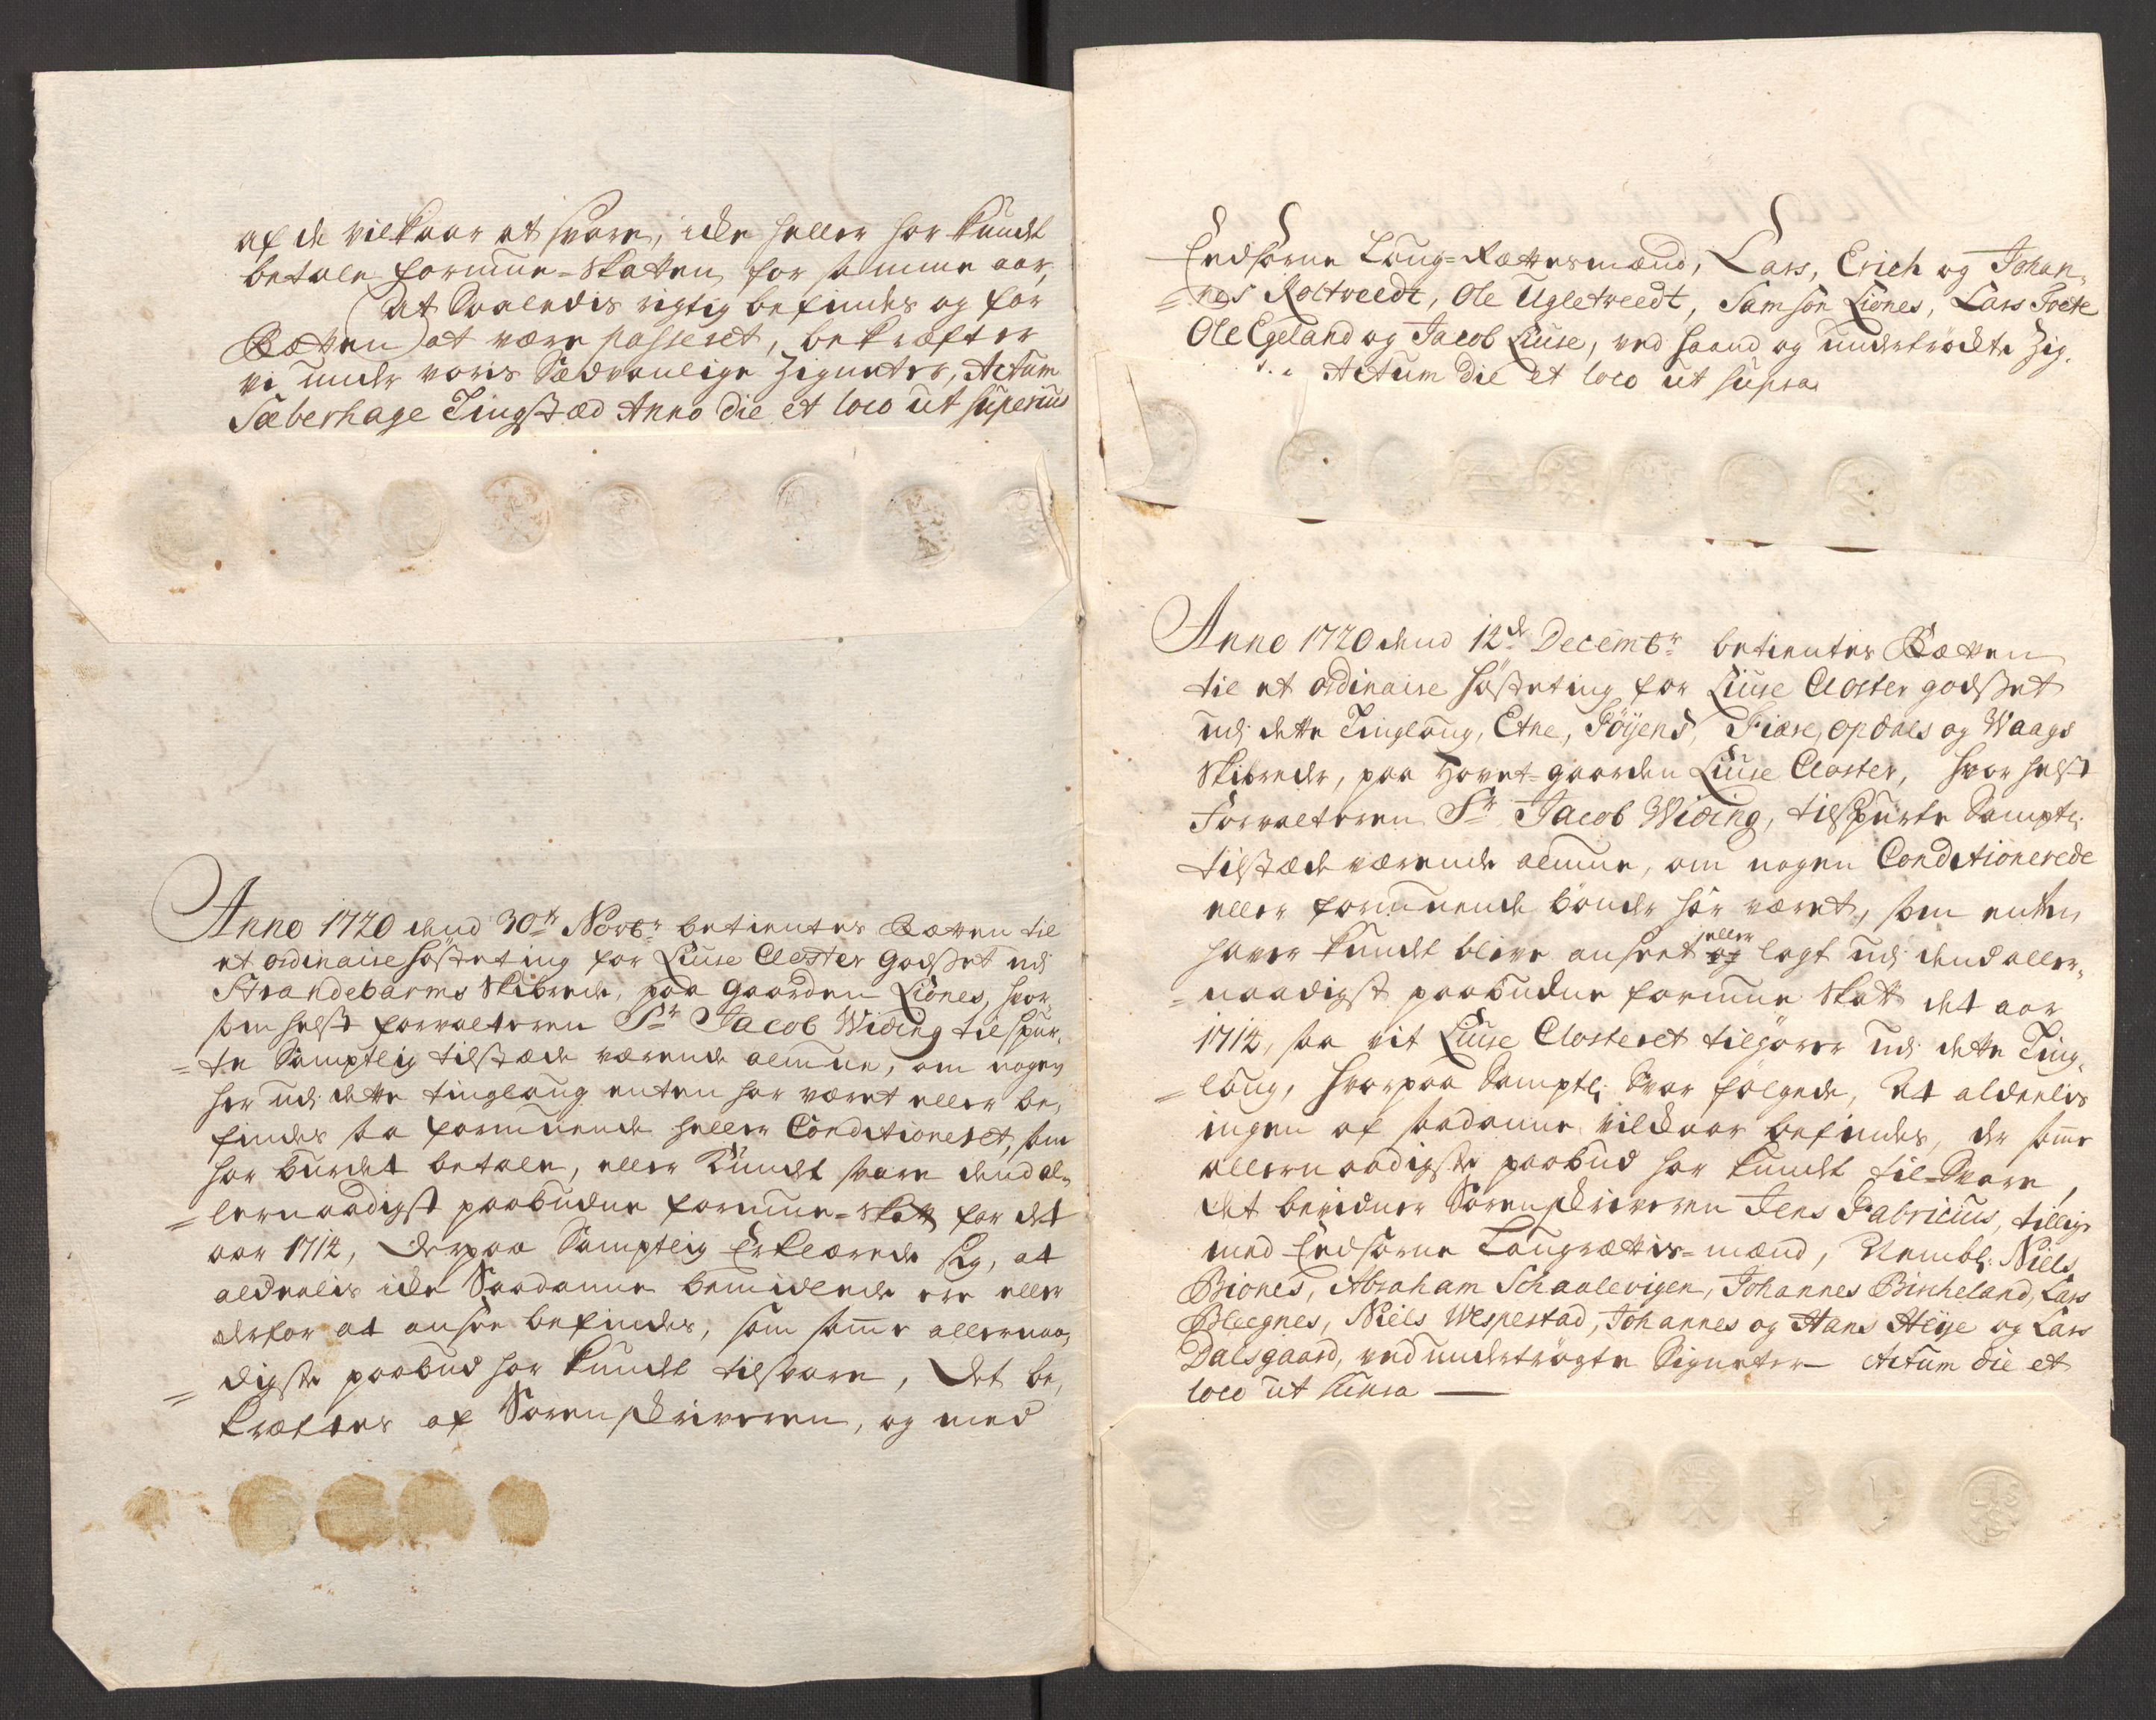 af de vilkaar at svare, icke heller har kundt
betale formue-skatten for samme aar,
At Saaledis rigtig befindes og for
Rætten at være passeret, bekræfter
vi under voris Sædvanlige Zigneter, Actum
Sæberhage Tingstæd Anno die et loco ut superius
Anno 1720 dend 30te Novbr betientes Rætten til
et ordinaire høsteting for Liuse Closter Godset udj
Strandebarms Skibrede, paa gaarden Liones, hvor
som helst forvalteren Sr Jacob Widing tilspur,
=te Samptlig tilstæde værende almue, om nogen
her udj dette tinglaug enten har været eller be,
findes saa formuende heller Conditioneret, som
har burdet betale, eller kundt svare dend al,
=lernaadigst paabudne formue-skatt for det
aar 1712, Derpaa Samptlig Erklærede sig, at
aldeelis icke Saadanne bemidlede ere eller
derfor at ansee befindes, som samme allernaa,
=digste paabud har kundt tilsvare, Det be,
kræftes af Sorenskriveren, og med
Eedsorne Laug-Rættesmænd, Lars, Erich og Johan,
=nes Roltveedt, Ole Ugletveedt, Samson Liones, Lars Tvete
Ole Egeland og Jacob Liuse, ved haand og undertrückte Zig.
Actum die et loco ut supra
Anno 1720 dend 12te Decembr betientes Rætten
til et ordinaire høsteting for Liuse Closter godset
udj dette Tinglaug, Etne, Føyens, Fiære, Opdals og Waags
Skibreder, paa Hovet-gaarden Liuse Closter, hvor helst
Forvalteren Sr Jacob Widing, tilspurte Samptl:
tilstæde værende almue, om nogen Conditionerede
eller formuende bønder her været, som enten
haver kundt blive anseet og eller lagt udj dend aller,
=naadigst paabudne formue skatt det aar
1712, saa vit Liuse Closteret tilhører udj dette Ting,
=laug, hvorpaa Samptl: Svar følgede, At aldeelis
ingen af saadanne vilckaar befindes, der samme
allernaadigste paabud har kundt til-Svare,
det bevidner Sorenskriveren Jens Fabricius, tillige
med Eedsorne Laugrættis-mænd, Nembl: Niels
Biones, Abraham Schaalevigen, Johannes Bircheland, Lars
Bleegnes, Niels Wespestad, Johannes og Hans Høye og Lars
Dalsgaard, ved undertrøgte Signeter Actum die et
loco ut supra